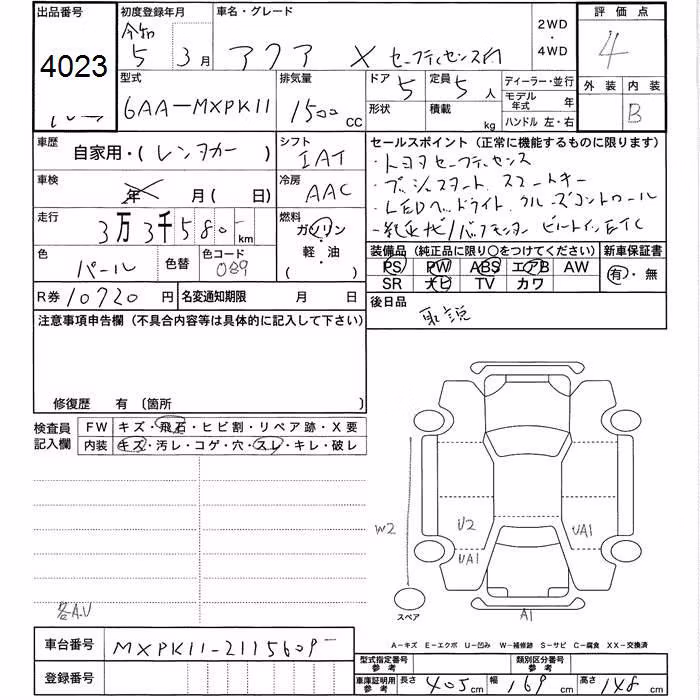 出品番号 初度登録年月 車名・グレード 2WD・4WD 評価点
4023 令和 5 3月 アクア X セーフティセンス付 4
型式 排気量 ドア 5 定員 5人 ディーラー・並行 外装 内装
6AA-MXPK11 1500 CC 形状 積載 kg モデル年式 年 B
ハンドル 左・右
車歴 自家用・(レンタカー) シフト IAT セールスポイント(正常に機能するものに限ります)
・トヨタセーフティセンス
車検 年 月(日) 冷房 AAC ・プッシュスタート スマートキー
・LEDヘッドライト クルーズコントロール
走行 3万3千580- km 燃料 ガソリン 軽・油 ( ) ・純正ナビ/バックモニター ビルトインETC
色 パール 色替 色コード 089 装備品(純正品に限り〇をつけてください) 新車保証書
PS PW ABS エアB AW 有・無
SR ナビ TV カワ
R券 10720円 名変通知期限 月 日 後日品 取説
注意事項申告欄(不具合内容等は具体的に記入して下さい)
修復歴 有 〔箇所 〕
検査員記入欄 FW キズ・飛石・ヒビ割・リペア跡・X要
内装 キズ・汚レ・コゲ・穴・スレ・キレ・破レ
W2 U2 UA1
UA1
各A.U スペア A1
車台番号 MXPK11-2115609 A-キズ E-エクボ U-凹み W-補修跡 S-サビ C-腐食 XX-交換済
型式指定番号参考 類別区分番号参考
登録番号 車庫証明用参考 長さ 405cm 幅 169cm 高さ 148cm